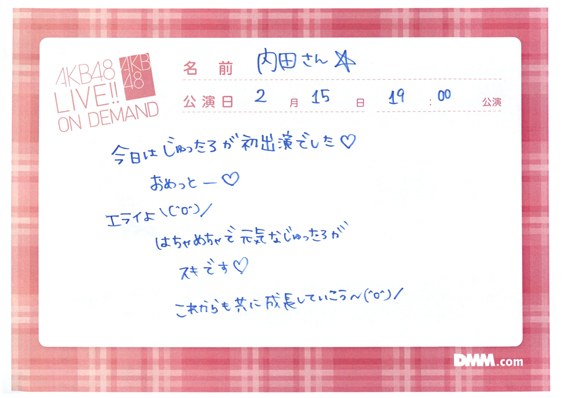 AKB48
LIVE!!
ON DEMAND
AKB
48
名前 内田さん☆
公演日 2月15日 19:00 公演
今日はじゅったろが初出演でした♡
おめっとー♡
エライよ\(^o^)/
はちゃめちゃで元気なじゅったろが
スキです♡
これからも共に成長していこう〜(^o^)/
DMM.com